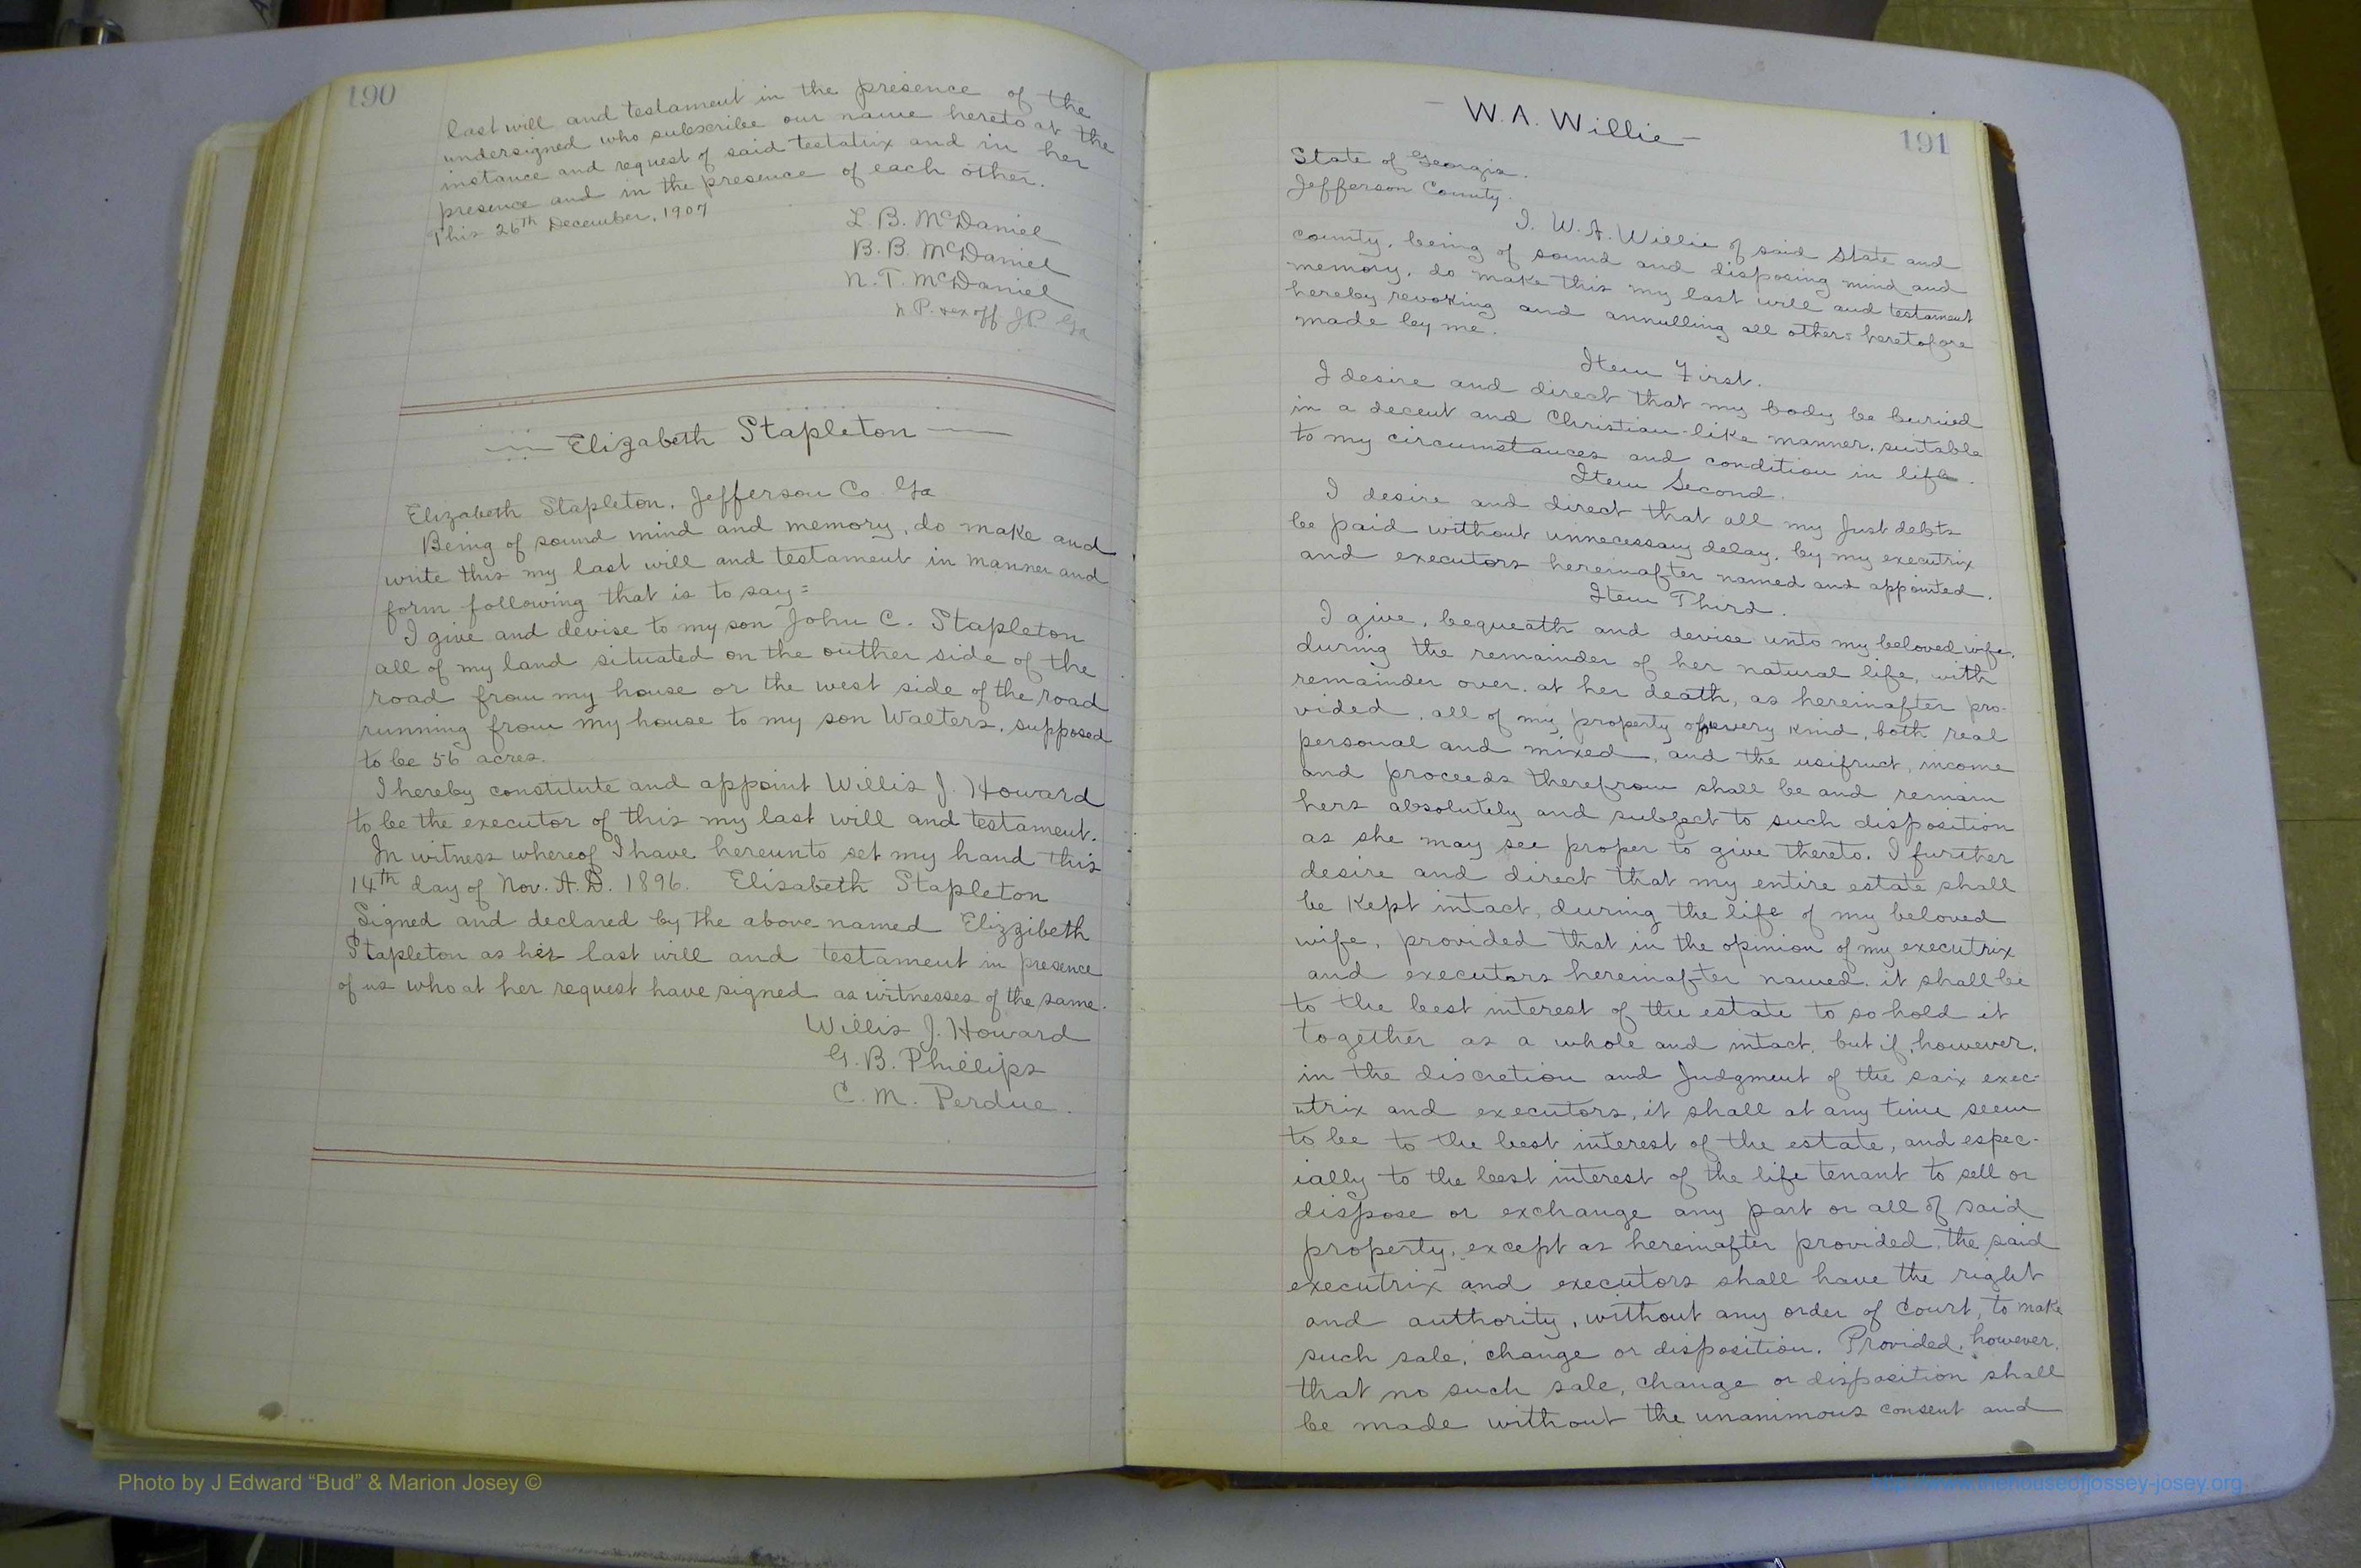 190
last will and testament in the presence of the
undersigned who subscribe our name hereto at the
instance and request of said testatrix and in her
presence and in the presence of each other.
This 26th December, 1907
L. B. McDaniel
B. B. McDaniel
N. T. McDaniel
N P. & ex off. J.P. Ga
Elizabeth Stapleton
Elizabeth Stapleton, Jefferson Co. Ga
Being of sound mind and memory, do make and
write this my last will and testament in manner and
form following that is to say:
I give and devise to my son John C. Stapleton
all of my land situated on the outher side of the
road from my house or the west side of the road
running from my house to my son Walters, supposed
to be 56 acres.
I hereby constitute and appoint Willis J. Howard
to be the executor of this my last will and testament.
In witness whereof I have hereunto set my hand this
14th day of Nov. A.D. 1896. Elisabeth Stapleton
Signed and declared by the above named Elizzibeth
Stapleton as her last will and testament in presence
of us who at her request have signed as witnesses of the same.
Willis J. Howard
G. B. Phillips
C. M. Perdue.
W. A. Willie
191
State of Georgia.
Jefferson County.
I. W. A. Willie of said State and
county, being of sound and disposing mind and
memory, do make this my last will and testament
hereby revoking and annulling all others heretofore
made by me.
Item First.
I desire and direct that my body be buried
in a decent and Christian-like manner, suitable
to my circumstances and condition in life.
Item Second.
I desire and direct that all my Just debts
be paid without unnecessary delay, by my executrix
and executors hereinafter named and appointed.
Item Third.
I give, bequeath and devise unto my beloved wife,
during the remainder of her natural life, with
remainder over, at her death, as hereinafter pro-
vided, all of my property of every kind, both real
personal and mixed, and the usifruct, income
and proceeds therefrom shall be and remain
hers absolutely and subject to such disposition
as she may see proper to give thereto. I further
desire and direct that my entire estate shall
be kept intact, during the life of my beloved
wife, provided that in the opinion of my executrix
and executors hereinafter named, it shall be
to the best interest of the estate to so hold it
together as a whole and intact, but if, however,
in the discretion and Judgment of the saix exec-
utrix and executors, it shall at any time seem
to be to the best interest of the estate, and espec-
ially to the best interest of the life tenant to sell or
dispose or exchange any part or all of said
property, except as hereinafter provided, the said
executrix and executors shall have the right
and authority, without any order of Court, to make
such sale, change or disposition. Provided, however,
that no such sale, change or disposition shall
be made without the unanimous consent and
Photo by J Edward “Bud” & Marion Josey ©
http://www.thehouseofjossey-josey.org